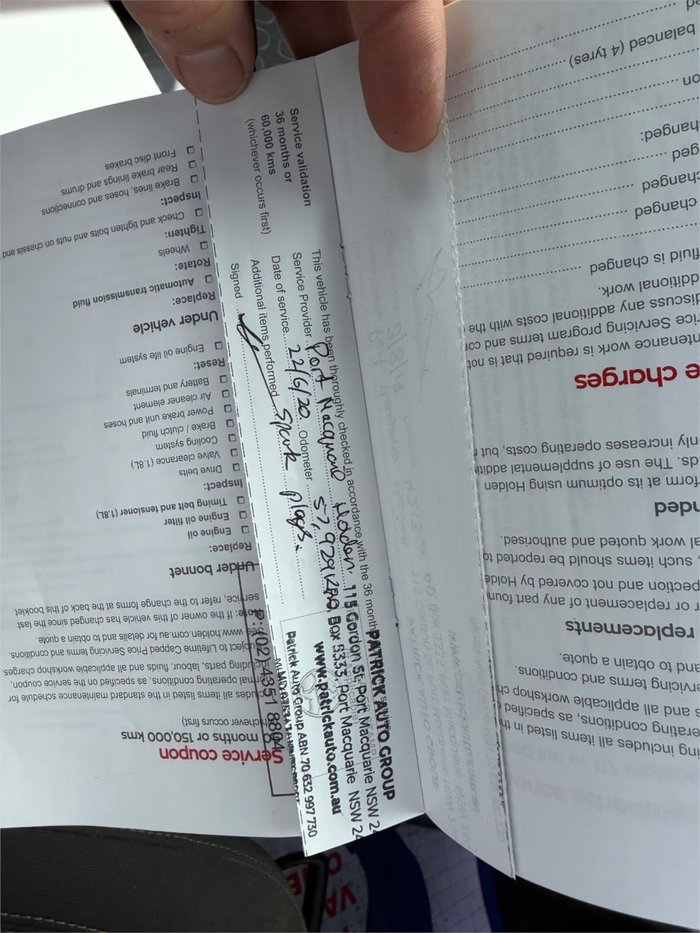 Service validation
36 months or
60,000 kms
(whichever occurs first)
This vehicle has been thoroughly checked in accordance with the 36 month/
Service Provider Port Macquarie Holden.
Date of service 22/6/20. Odometer 57,929
Additional items performed Spark plugs.
Signed
PATRICK AUTO GROUP
115 Gordon St, Port Macquarie NSW 24
PO Box 5333, Port Macquarie NSW 24
www.patrickauto.com.au
Patrick Auto Group ABN 70 632 997 730
P: (02) 4351 8804
Service coupon
months or 150,000 kms
whichever occurs first)
cludes all items listed in the standard maintenance schedule for
mal operating conditions, as specified on the service coupon,
luding parts, labour, fluids and all applicable workshop charges.
ubject to Lifetime Capped Price Servicing terms and conditions.
see www.holden.com.au for details and to obtain a quote.
ote: If the owner of this vehicle has changed since the last
service, refer to the change forms at the back of this booklet.
Under bonnet
Replace:
Engine oil
Engine oil filter
Timing belt and tensioner (1.8L)
Inspect:
Drive belts
Valve clearance (1.8L)
Cooling system
Brake / clutch fluid
Power brake unit and hoses
Air cleaner element
Battery and terminals
Reset:
Engine oil life system
Under vehicle
Replace:
Automatic transmission fluid
Rotate:
Wheels
Tighten:
Check and tighten bolts and nuts on chassis and
Inspect:
Brake lines, hoses and connections
Rear brake linings and drums
Front disc brakes
ing includes all items listed in th
erating conditions, as specified
s and all applicable workshop ch
rvicing terms and conditions.
m.au and to obtain a quote.
replacements
or replacement of any part foun
pection and not covered by Holde
, such items should be reported to
al work quoted and authorised.
nded
form at its optimum using Holden
ds. The use of supplemental addit
nly increases operating costs, but r
e charges
ntenance work is required that is not
rice Servicing program terms and con
iscuss any additional costs with the
additional work.
fluid is changed
changed
changed
ged
hanged:
on
balanced (4 tyres)
ed